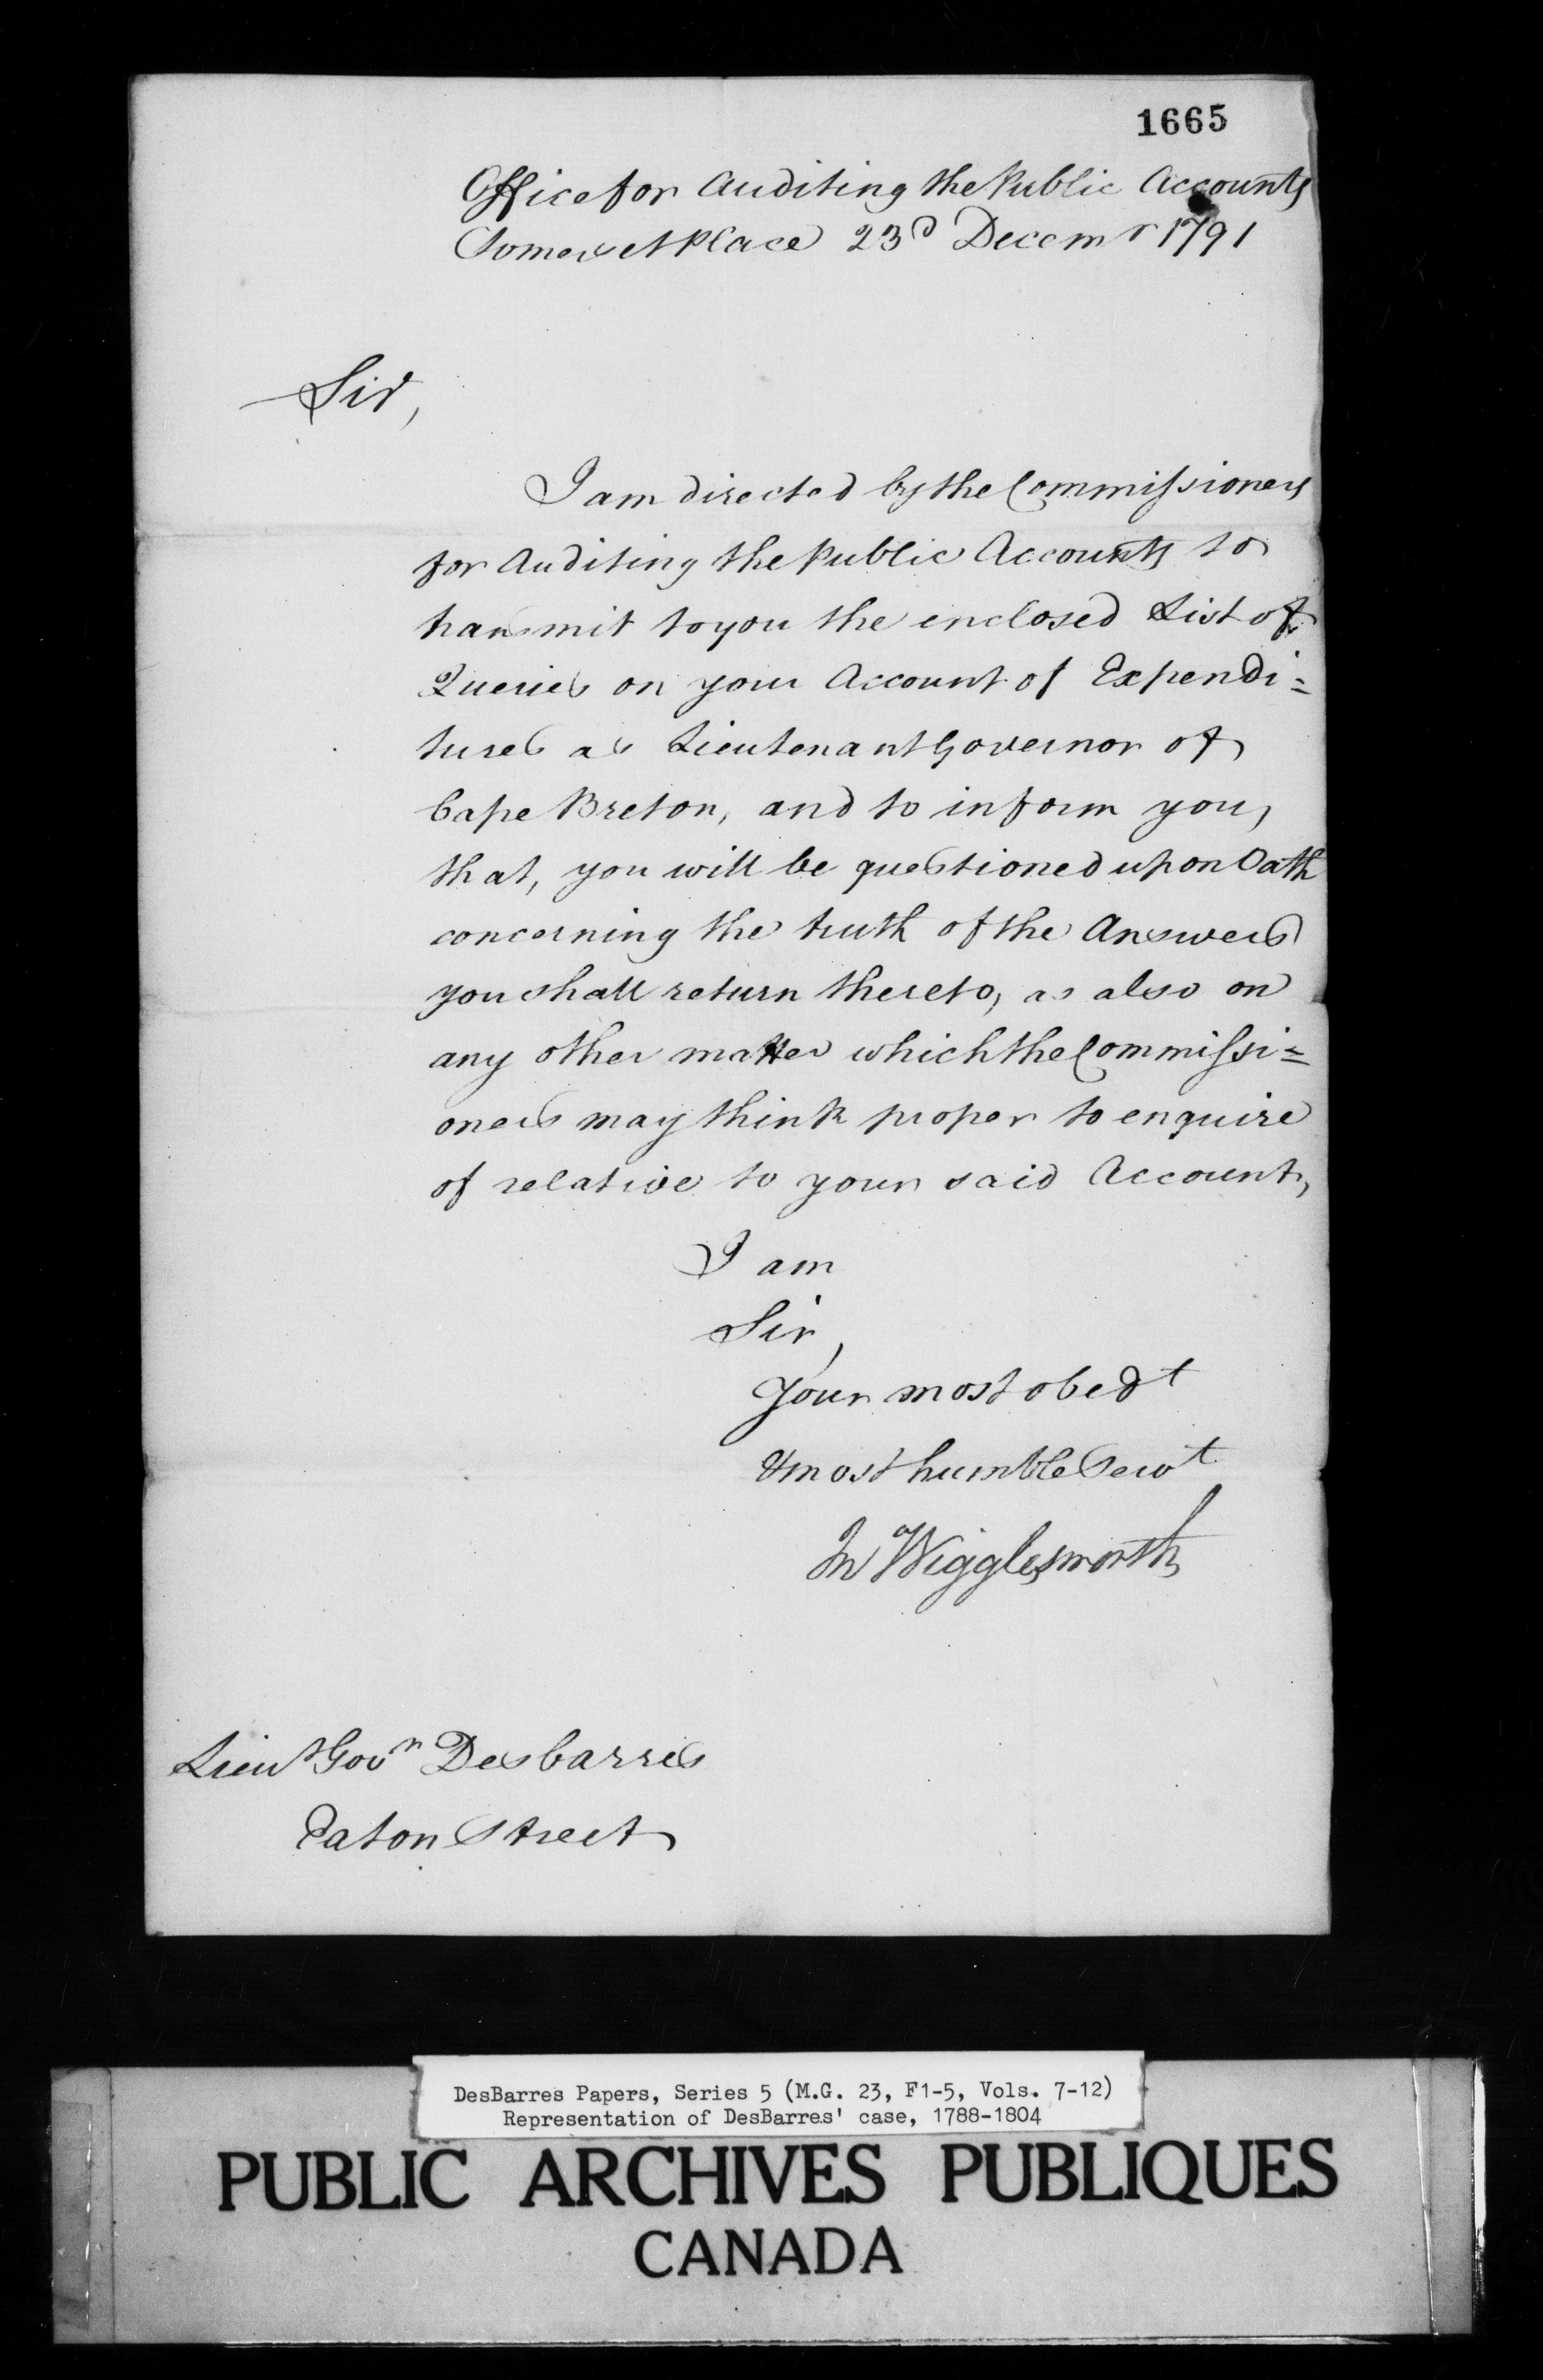 1665
Office for Auditing the Public Accounts
Somerset Place 23d Decemr 1791
Sir,
I am directed by the Commissioners
for Auditing the Public Accounts to
transmit to you the enclosed List of
Queries on your Account of Expendi=
tures as Lieutenant Governor of
Cape Breton, and to inform you,
that, you will be questioned upon Oath
concerning the truth of the Answers
you shall return thereto, as also on
any other matter which the Commissi=
oners may think proper to enquire
of relative to your said Account,
I am
Sir,
Your most obedt
& most humble Servt
Jn Wigglesworth
Lieut Govr Desbarres
Eaton Street
DesBarres Papers, Series 5 (M.G. 23, F1-5, Vols. 7-12)
Representation of DesBarres' case, 1788-1804
PUBLIC ARCHIVES PUBLIQUES
CANADA